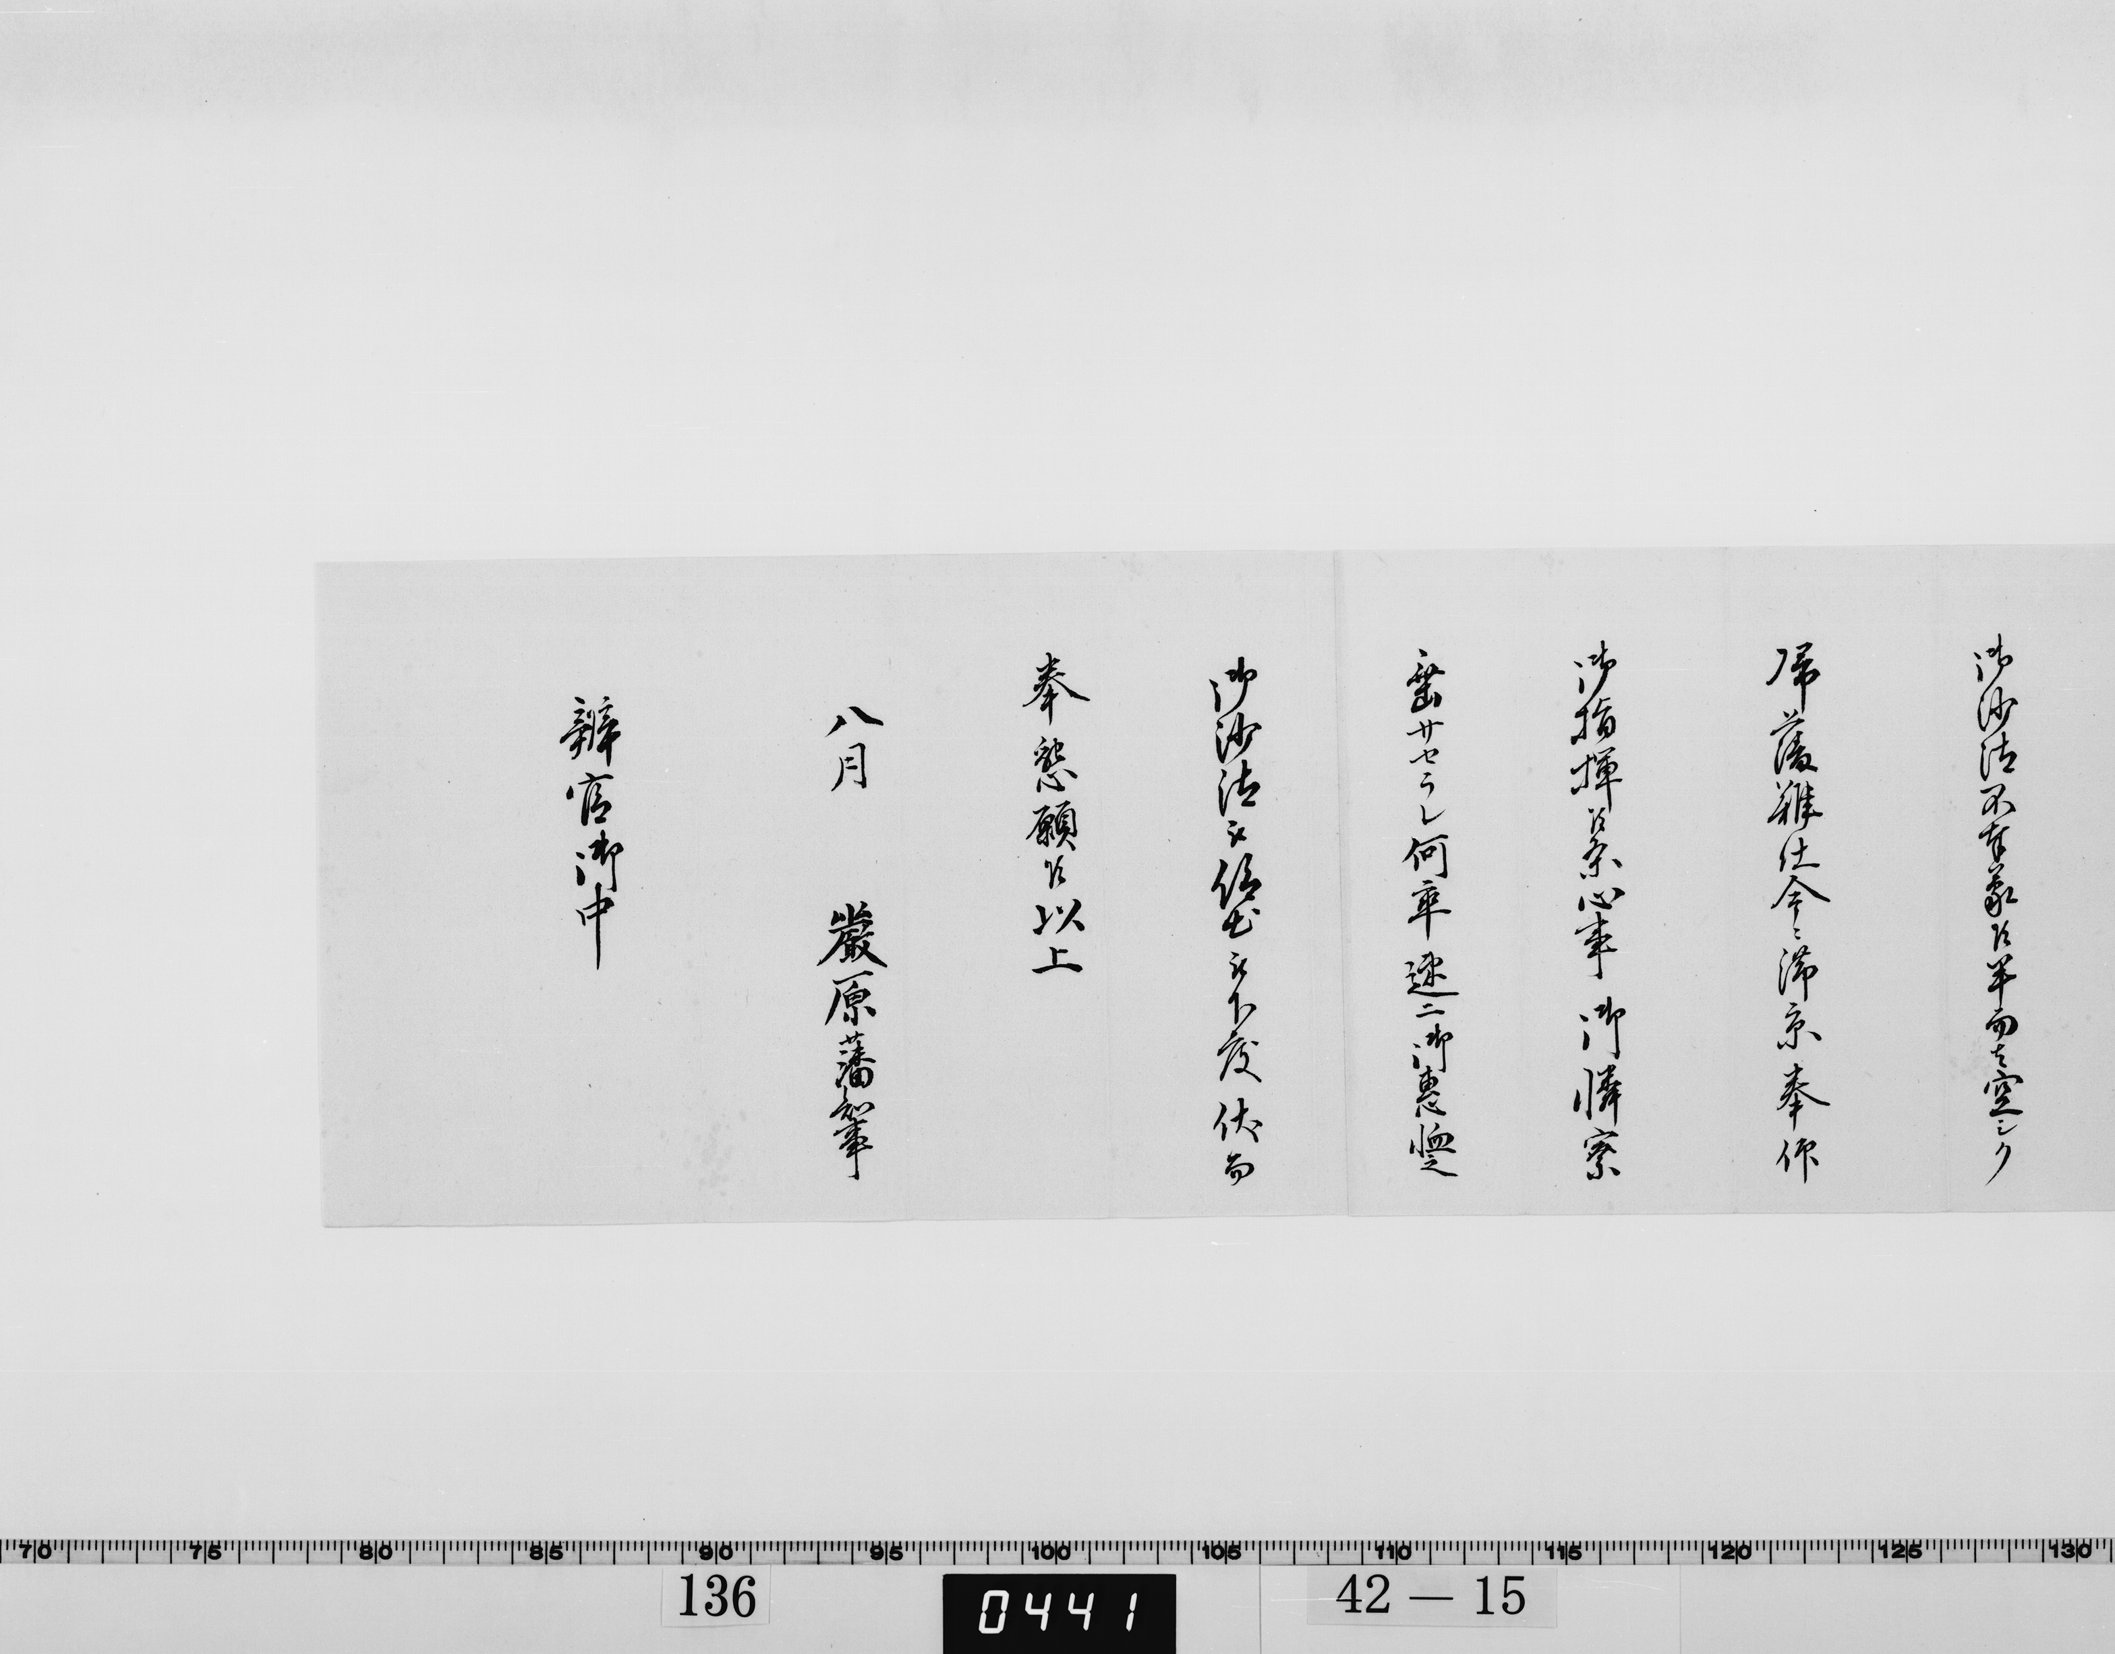 御沙汰不奉蒙候半而者空シク
帰藩難仕今ニ滞京奉仰
御指揮候条心事御憐察
垂サセラレ何卒速ニ御恵恤之
御沙汰被仰出被下度伏而
奉懇願候以上
八月 厳原藩知事
辨官御中
70 75 80 85 90 95 100 105 110 115 120 125 130
136 0441 42－15